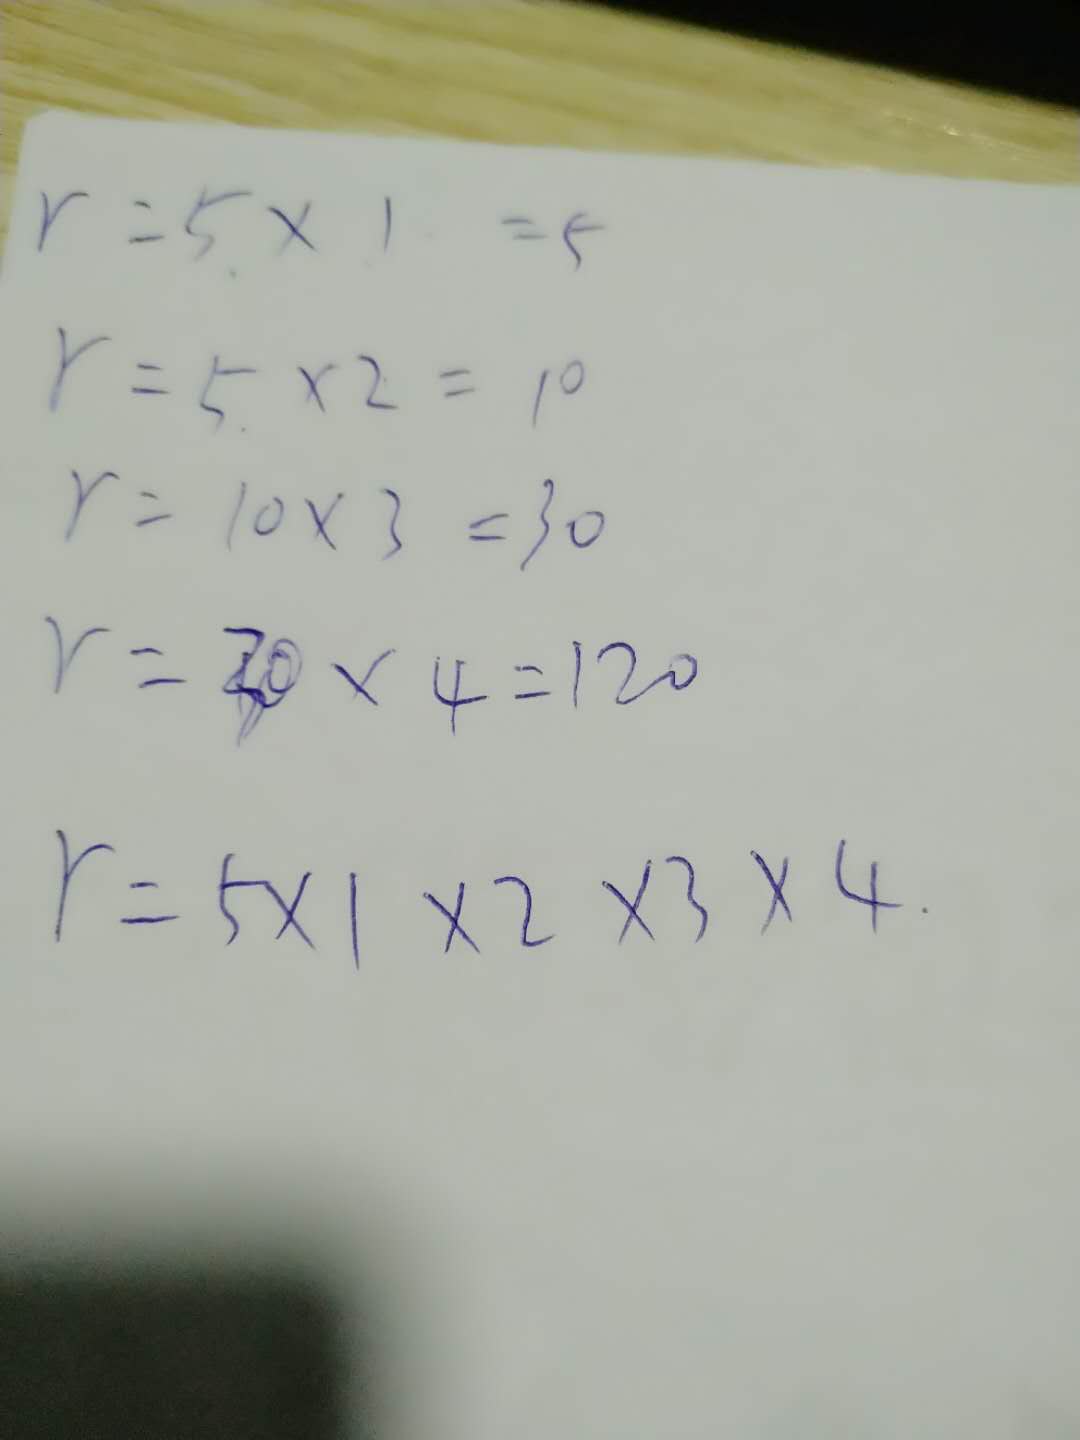 r = 5 × 1 = 5
r = 5 × 2 = 10
r = 10 × 3 = 30
r = 30 × 4 = 120
r = 5 × 1 × 2 × 3 × 4.